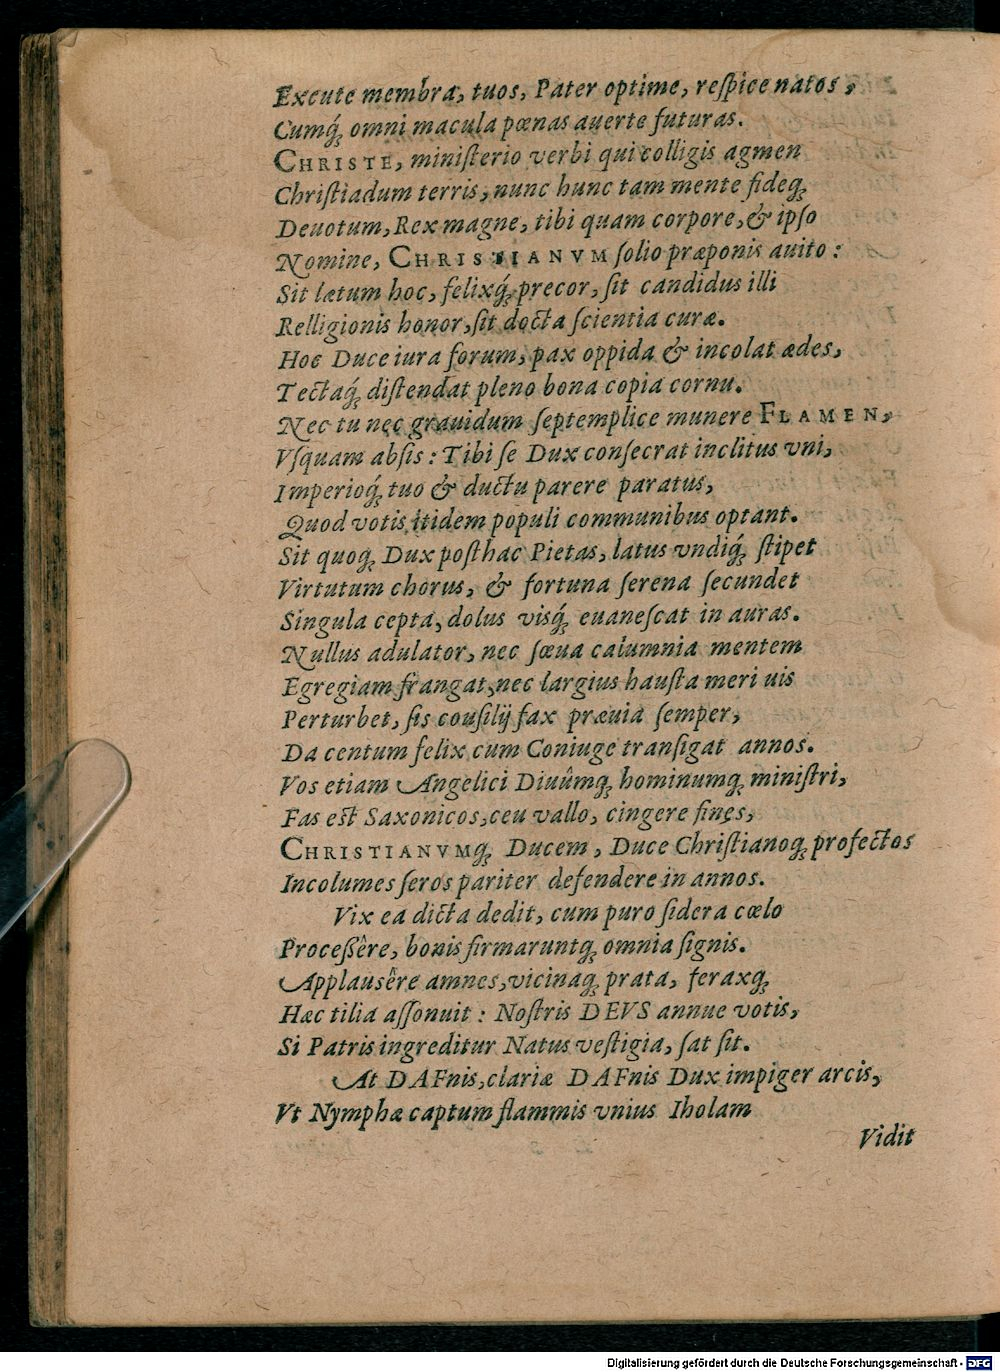 Excute membra, tuos, Pater optime, reſpice natos,
Cumq́ꝫ omni macula pœnas auerte futuras.
CHRISTE, miniſterio verbi qui colligis agmen
Chriſtiadum terris, nunc hunc tam mente fideqꝫ
Deuotum, Rex magne, tibi quam corpore, & ipſo
Nomine, CHRISTIANVM ſolio præponis auito:
Sit lætum hoc, felixq́ꝫ precor, ſit candidus illi
Relligionis honor, ſit docta ſcientia curæ.
Hoc Duce iura forum, pax oppida & incolat ædes,
Tectaq́ꝫ diſtendat pleno bona copia cornu.
Nec tu nec grauidum ſeptemplice munere FLAMEN,
Vſquam abſis: Tibi ſe Dux conſecrat inclitus vni,
Imperioq́ꝫ tuo & ductu parere paratus,
Quod votis itidem populi communibus optant.
Sit quoqꝫ Dux poſthac Pietas, latus vndiq́ꝫ ſtipet
Virtutum chorus, & fortuna ſerena ſecundet
Singula cepta, dolus visq́ꝫ euaneſcat in auras.
Nullus adulator, nec ſæua calumnia mentem
Egregiam frangat, nec largius hauſta meri uis
Perturbet, ſis conſilij fax præuia ſemper,
Da centum felix cum Coniuge tranſigat annos.
Vos etiam Angelici Diuûmqꝫ hominumqꝫ miniſtri,
Fas est Saxonicos, ceu vallo, cingere fines,
CHRISTIANVMqꝫ Ducem, Duce Chriſtianoqꝫ profectos
Incolumes ſeros pariter defendere in annos.
Vix ea dicta dedit, cum puro ſidera cœlo
Proceßêre, bonis firmaruntqꝫ omnia ſignis.
Applausêre amnes, vicinaqꝫ prata, feraxqꝫ
Hæc tilia aſſonuit: Noſtris DEVS annue votis,
Si Patris ingreditur Natus veſtigia, ſat ſit.
At DAFnis, clariæ DAFnis Dux impiger arcis,
Vt Nymphæ captum flammis vnius Iholam
Vidit
Digitalisierung gefördert durch die Deutsche Forschungsgemeinschaft - DFG